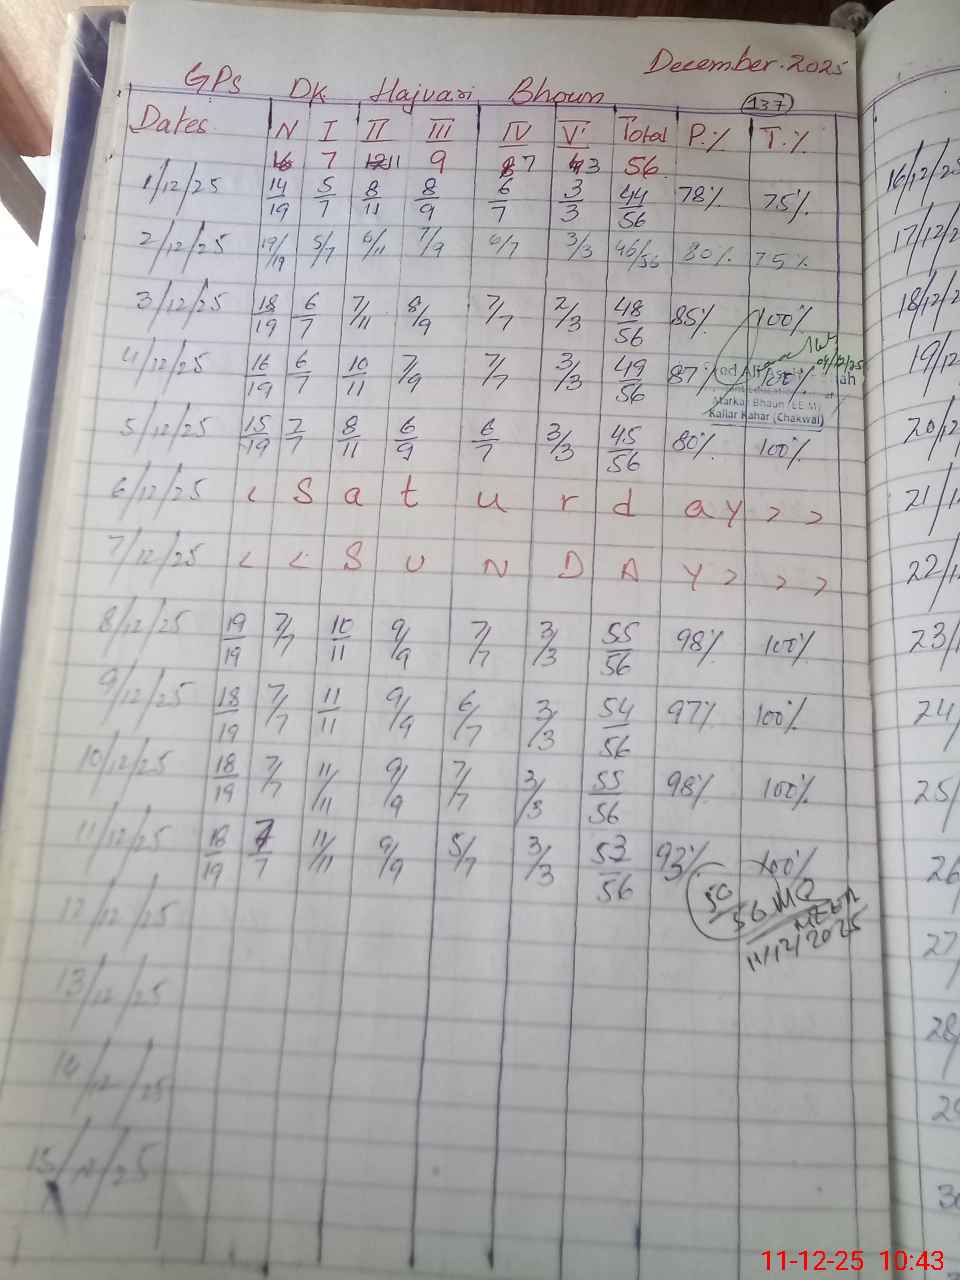 December.2025
GPs DK Hajvari Bhoun
137
Dates N I II III IV V Total P.% T.%
16 7 12 11 9 8 7 4 3 56
1/12/25 14/19 5/7 8/11 8/9 6/7 3/3 44/56 78% 75%
2/12/25 19/19 5/7 6/11 7/9 6/7 3/3 46/56 80% 75%
3/12/25 18/19 6/7 7/11 8/9 7/7 2/3 48/56 85% 100%
04/12/25
4/12/25 16/19 6/7 10/11 7/9 7/7 3/3 49/56 87% 100%
Markaz Bhaun (EE.M)
Kallar Kahar (Chakwal)
5/12/25 15/19 7/7 8/11 6/9 6/7 3/3 45/56 80% 100%
6/12/25 < S a t u r d a y > >
7/12/25 < < S U N D A Y > > >
8/12/25 19/19 7/7 10/11 9/9 7/7 3/3 55/56 98% 100%
9/12/25 18/19 7/7 11/11 9/9 6/7 3/3 54/56 97% 100%
10/12/25 18/19 7/7 11/11 9/9 7/7 3/3 55/56 98% 100%
11/12/25 18/19 7/7 11/11 9/9 5/7 3/3 53/56 93% 100%
50/56 MEA
11/12/2025
12/12/25
13/12/25
14/12/25
15/12/25
16/12/25
17/12/2
18/12/2
19/12
20/12
21/1
22/1
23/1
24/
25/
26
27
28
29
30
11-12-25 10:43